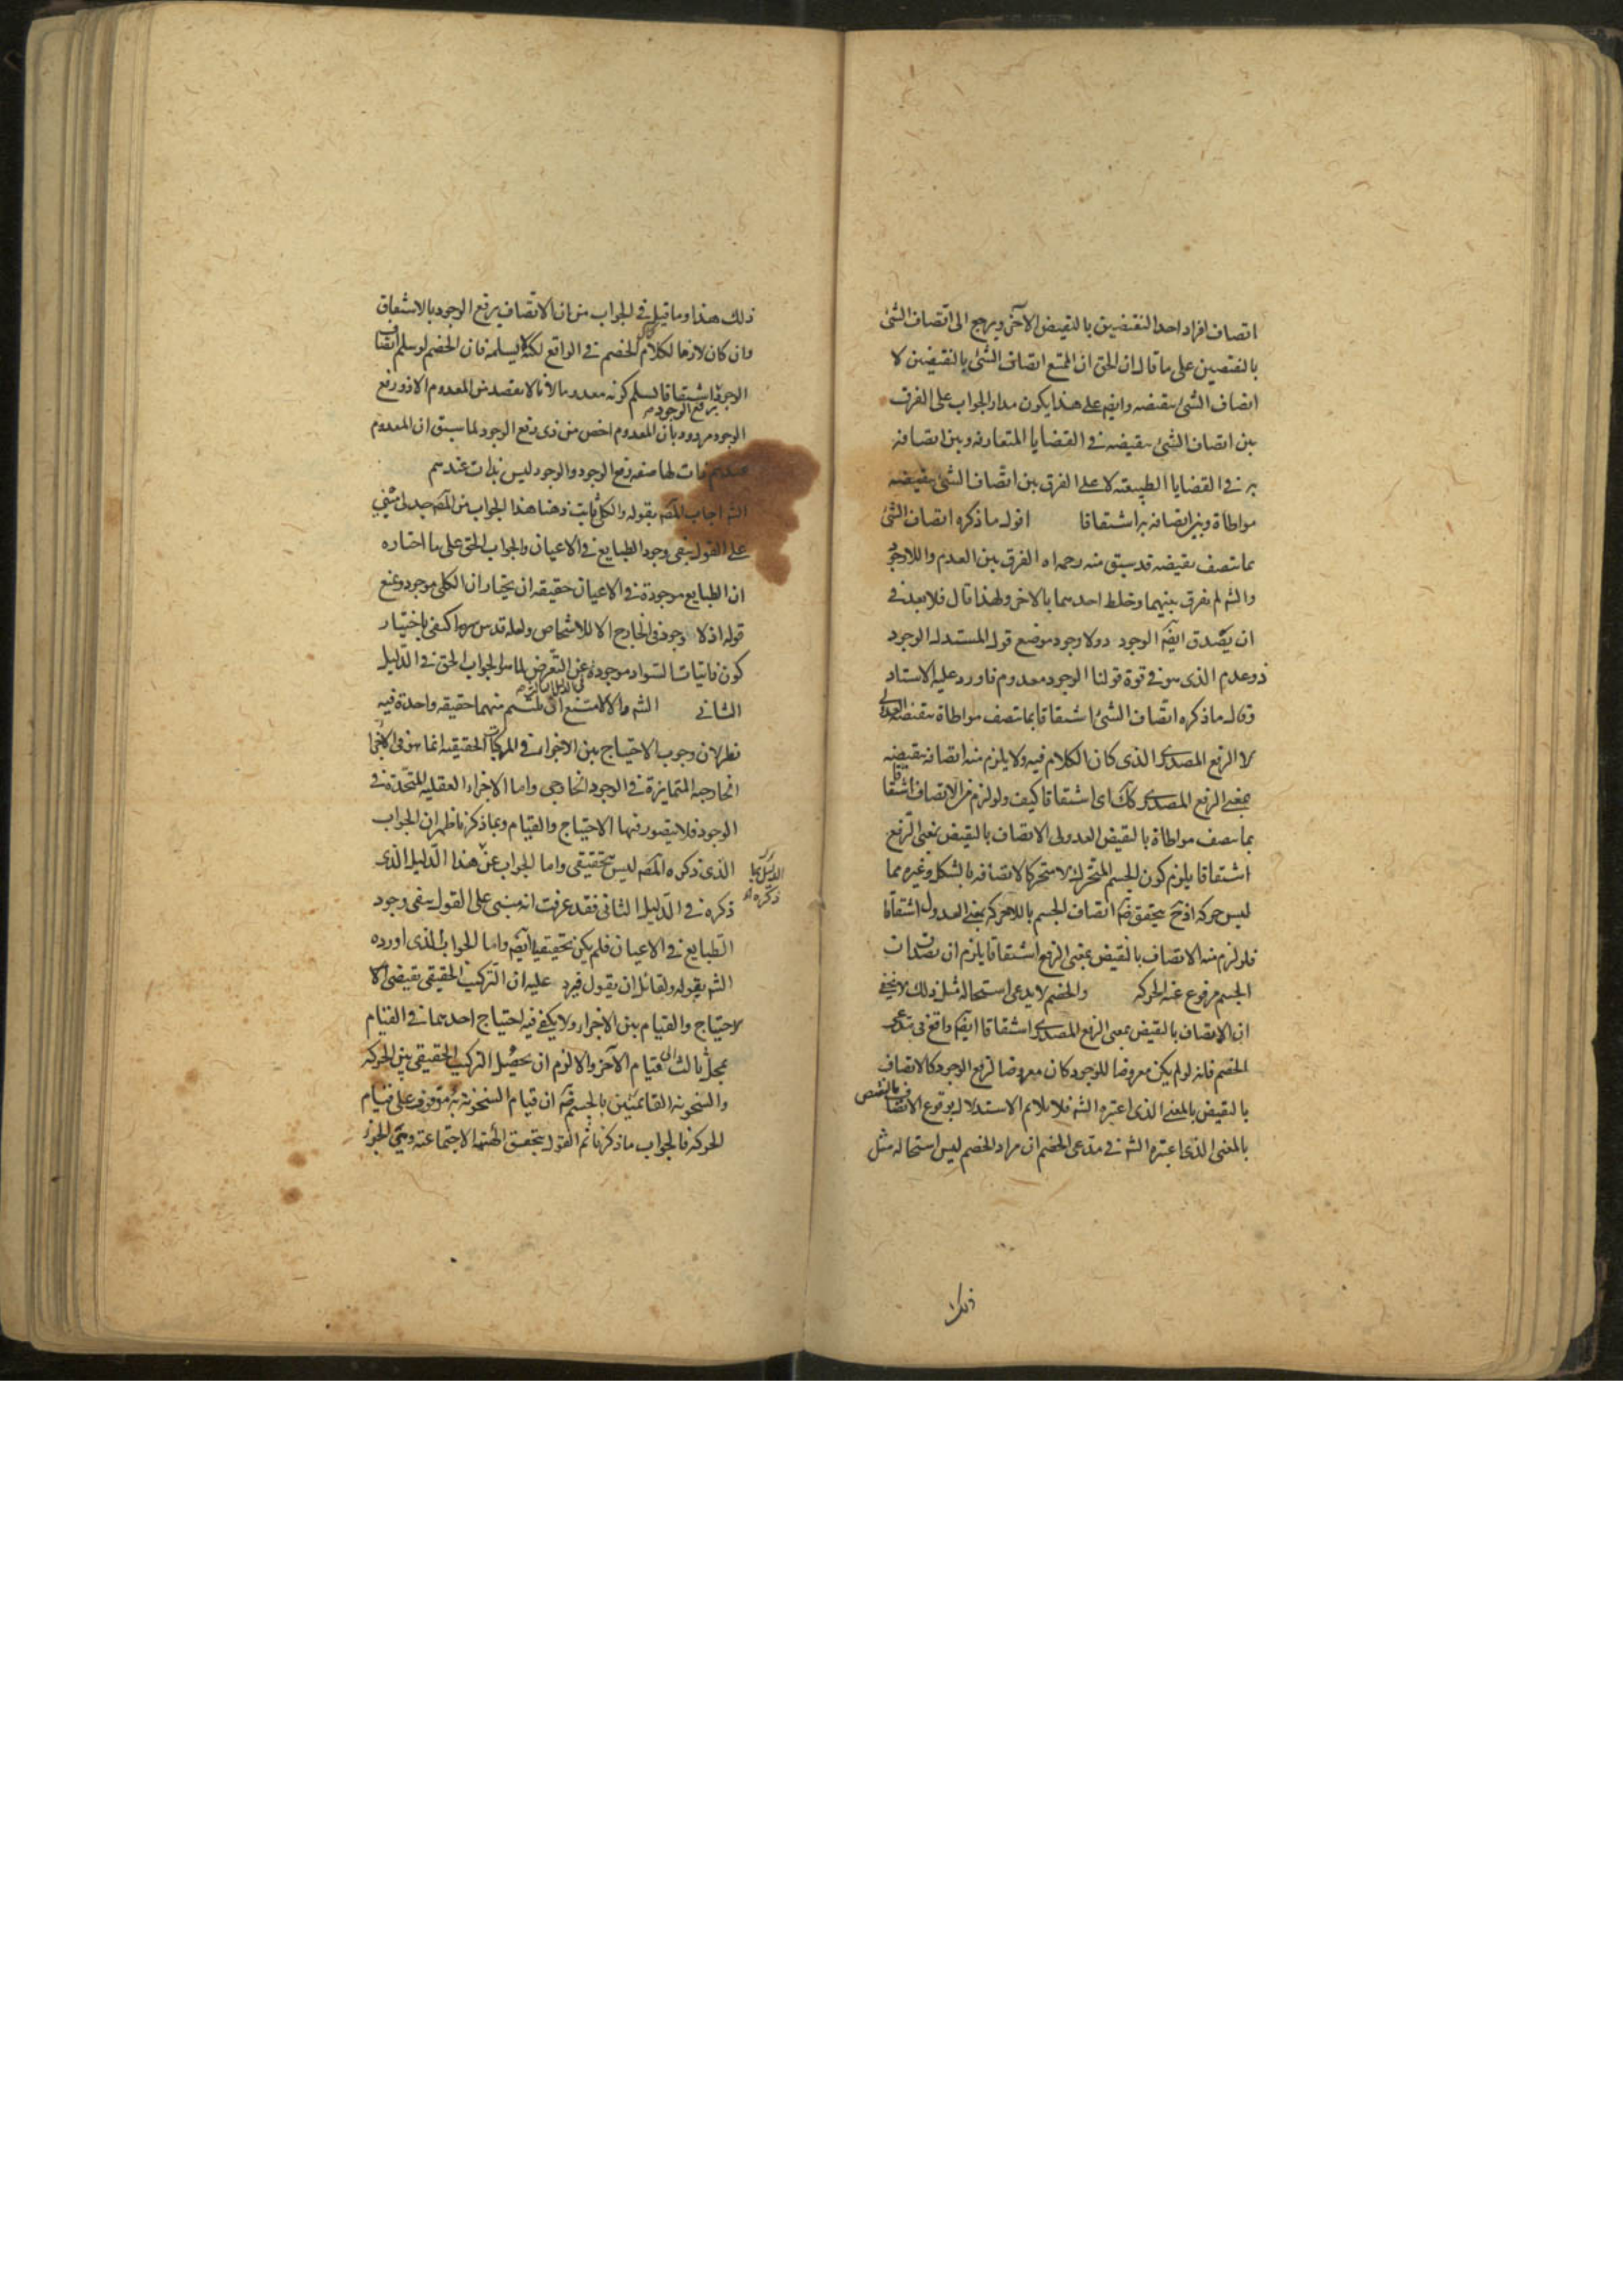 اتصاف افراد احد النقيضين بالنقيض الآخر ويرجع الى اتصاف الشئ
بالنقيضين على ما قال ان الحق ان الممتنع اتصاف الشئ بالنقيضين لا
اتصاف الشئ بنقيضه وايضا على هذا يكون مدار الجواب على الفرق
بين اتصاف الشئ بنقيضه في القضايا المتعارفه وبين اتصافه
به في القضايا الطبيعيه لا على الفرق بين اتصاف الشئ بنقيضه
مواطاة وبين اتصافه به اشتقاقا اقول ما ذكره اتصاف الشئ
بما يتصف بنقيضه قد سبق منه رحمه اه الفرق بين العدم واللاوجود
والشه لم يفرق بينهما وخلط احدهما بالآخر ولهذا قال فلا بعد في
ان يصدق ايضا الوجود ذو لا وجود موضع قول المستدل الوجود
ذو عدم الذى هو في قوة قولنا الوجود معدوم فاورد عليه الاستاد
وقال ما ذكره اتصاف الشئ اشتقاقا بما يتصف مواطاة بنقيضه العدولى
لا الرفع المصدرى الذى كان الكلام فيه ولا يلزم منه اتصافه بنقيضه
بمعنى الرفع المصدرى كك اى اشتقاقا كيف ولو لزم من الاتصاف اشتقاقا
بما يتصف مواطاة بالنقيض العدولى الاتصاف بالنقيض بمعنى الرفع
اشتقاقا يلزم كون الجسم المتحرك لا متحركا لاتصافه بالشكل وغيره مما
ليس حركه اذ ح يتحقق اتصاف الجسم باللاحركه بمعنى العدول اشتقاقا
فلو لزم منه الاتصاف بالنقيض بمعنى الرفع اشتقاقا يلزم ان يصدق ان
الجسم مرفوع عنه الحركه والخصم لا يدعى استحاله مثل ذلك لا يخفى
ان الاتصاف بالنقيض بمعنى الرفع المصدرى اشتقاقا ايضا واقع في مدعى
الخصم فانه لو لم يكن معروضا للوجود كان معروضا لرفع الوجود كالاتصاف
بالنقيض بالمعنى الذى اعتبره الشه فلا يلايم الاستدلال بوقوع الاتصاف بالنقيض
بالمعنى الذى اعتبره الشه في مدعى الخصم ان مراد الخصم ليس استحاله مثل
ذلك
ذلك هذا وما قيل في الجواب من ان الاتصاف برفع الوجود بالاشتقاق
وان كان لازما لكلام الخصم في الواقع لكنه لا يسلمه فان الخصم لو سلم اتصاف
الوجود اشتقاقا لسلم كونه معدوما لانا لا نقصد من المعدوم الا ذو رفع
برفع الوجود
الوجود مردود بان المعدوم اخص من ذى رفع الوجود لما سبق ان المعدوم
عندهم ذات لها صفه رفع الوجود والوجود ليس بذات عندهم
الشه اجاب المصه بقوله والكلى ثابت ذهنا هذا الجواب من المصه جدلى مبنى
على القول بنفى وجود الطبايع في الاعيان والجواب الحق على ما اختاره
ان الطبايع موجودة في الاعيان حقيقه ان يختار ان الكلى موجود ويمنع
قوله اذ لا وجود في الخارج الا للاشخاص ولعله قدس سره اكتفى باختيار
كون ذاتيات السواد موجودة عن التعرض لما هو الجواب الحق في الدليل
الثانى الشه والا لامتنع ان يلتئم منهما حقيقه واحدة فيه
نظر لان وجوب الاحتياج بين الاجزاء في المركبات الحقيقيه انما هو في الاجزاء
الخارجيه المتمايزة في الوجود الخارجى واما الاجزاء العقليه المتحدة في
الوجود فلا يتصور فيها الاحتياج والقيام وبما ذكرنا ظهر ان الجواب
الذى ذكره المصه ليس بتحقيقى واما الجواب عن هذا الدليل الذى
ذكره في الدليل الثانى فقد عرفت انه مبنى على القول بنفى وجود
الطبايع في الاعيان فلم يكن تحقيقيا ايضا واما الجواب الذى اورده
الشه بقوله ولقائل ان يقول فيرد عليه ان التركيب الحقيقى يقتضى الا
لاحتياج والقيام بين الاجزاء ولا يكفى فيه احتياج احدهما في القيام
بمحل ثالث الى قيام الآخر والا لزم ان يحصل التركيب الحقيقى بين الحركه
والسخونه القائمتين بالجسم ان قيام السخونه به موقوف على قيام
الحركه فالجواب ما ذكرنا ثم القول بتحقق الهيئه الاجتماعيه وهى الجزء